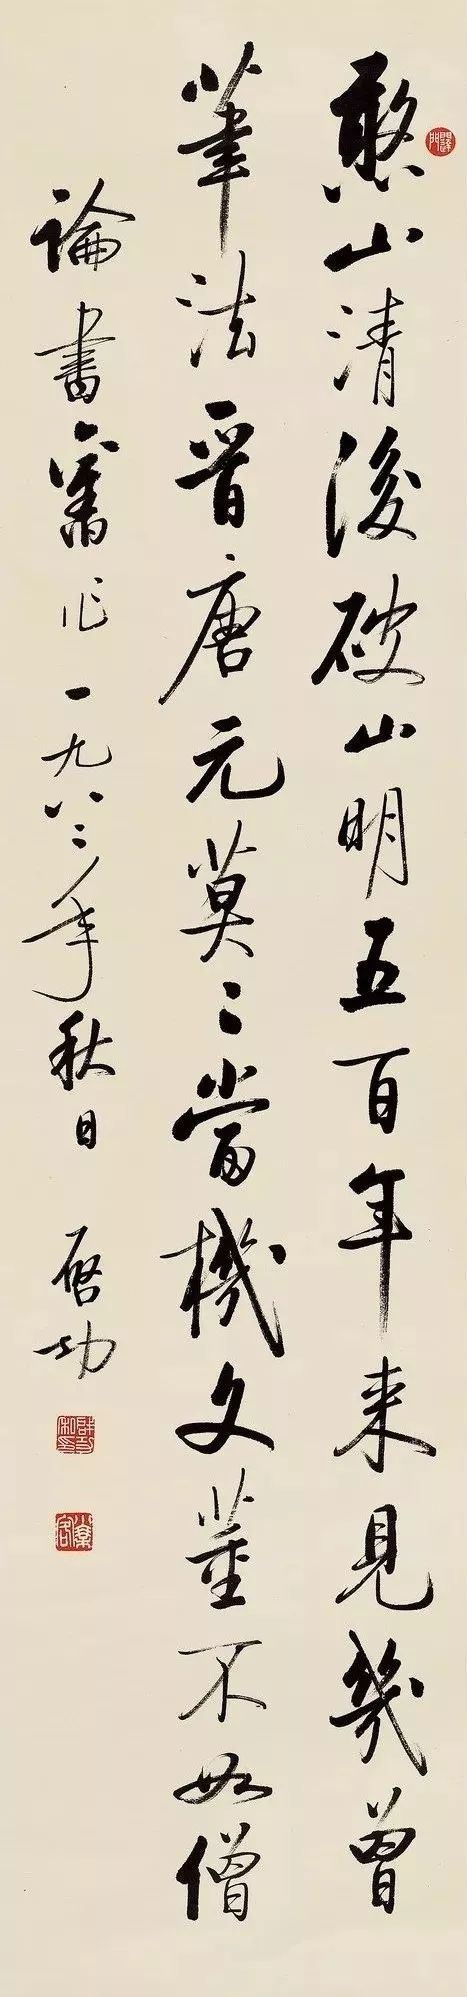 憨山清後破山明五百年来見幾曾
筆法晉唐元莫二當機文董不如僧
論書舊作一九八二年秋日
啓功